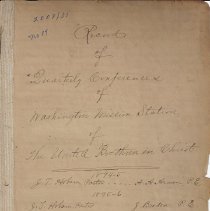 Record
of
Quarterly Conferences
of
Washington Mission Station
of
The United Brethren in Christ
1894-5
J. T. Hobson Pastor P. E.
1895-6
J. T. Hobson Pastor J. P. E.